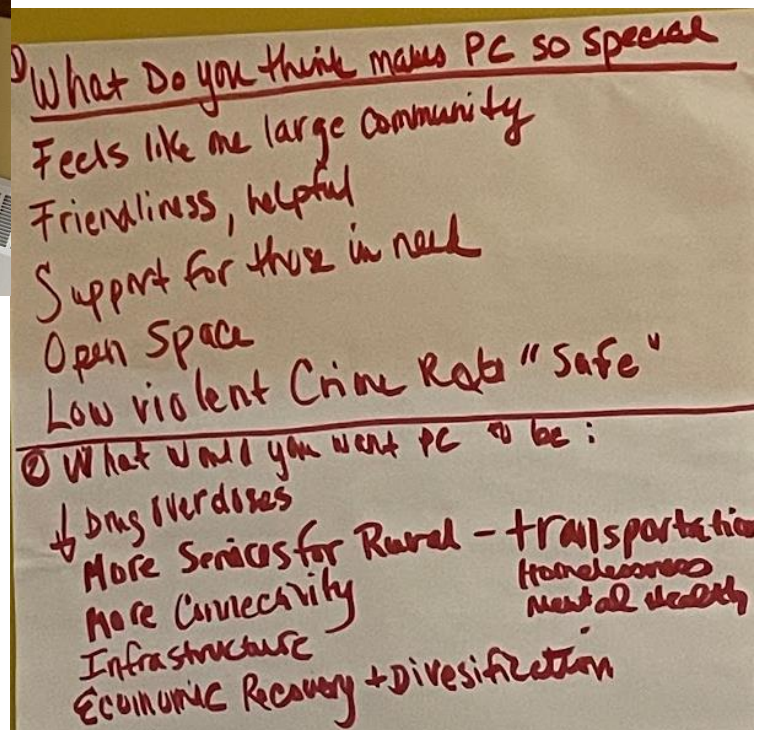 1) What Do you think makes PC so special
Feels like one large community
Friendliness, helpful
Support for those in need
Open Space
Low violent Crime Rate "Safe"
② What would you want PC to be :
↓ Drug overdoses
More Services for Rural - transportation
Homelessness
Mental Health
More Connectivity
Infrastructure
Economic Recovery + Divesification